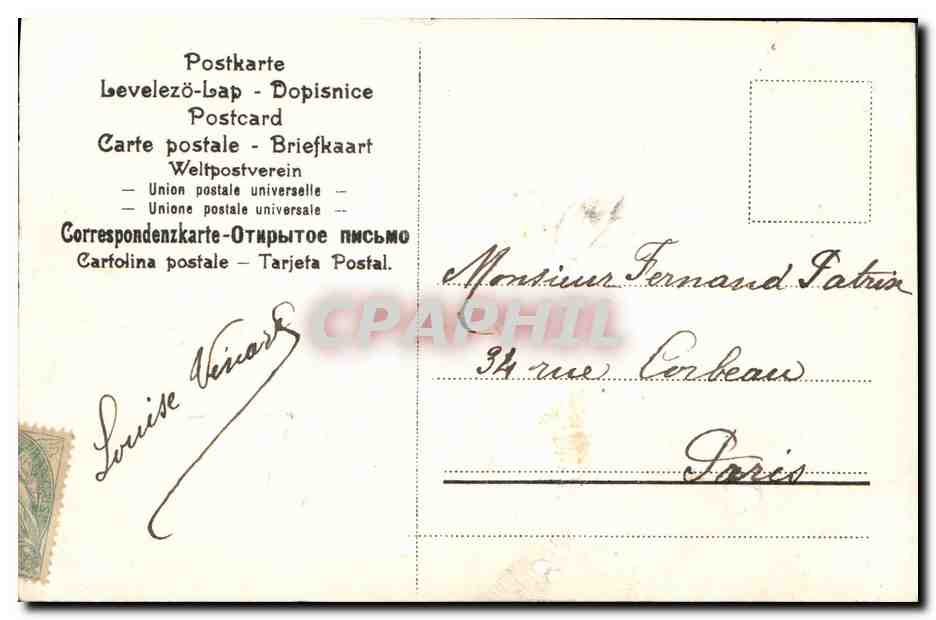 Postkarte
Levelezö-Lap - Dopisnice
Postcard
Carte postale - Briefkaart
Weltpostverein
— Union postale universelle —
— Unione postale universale —
Correspondenzkarte-Открытое письмо
Cartolina postale — Tarjeta Postal.
Louise
CPAPHIL
Monsieur Fernand Patrix
34 rue Corbeau
Paris